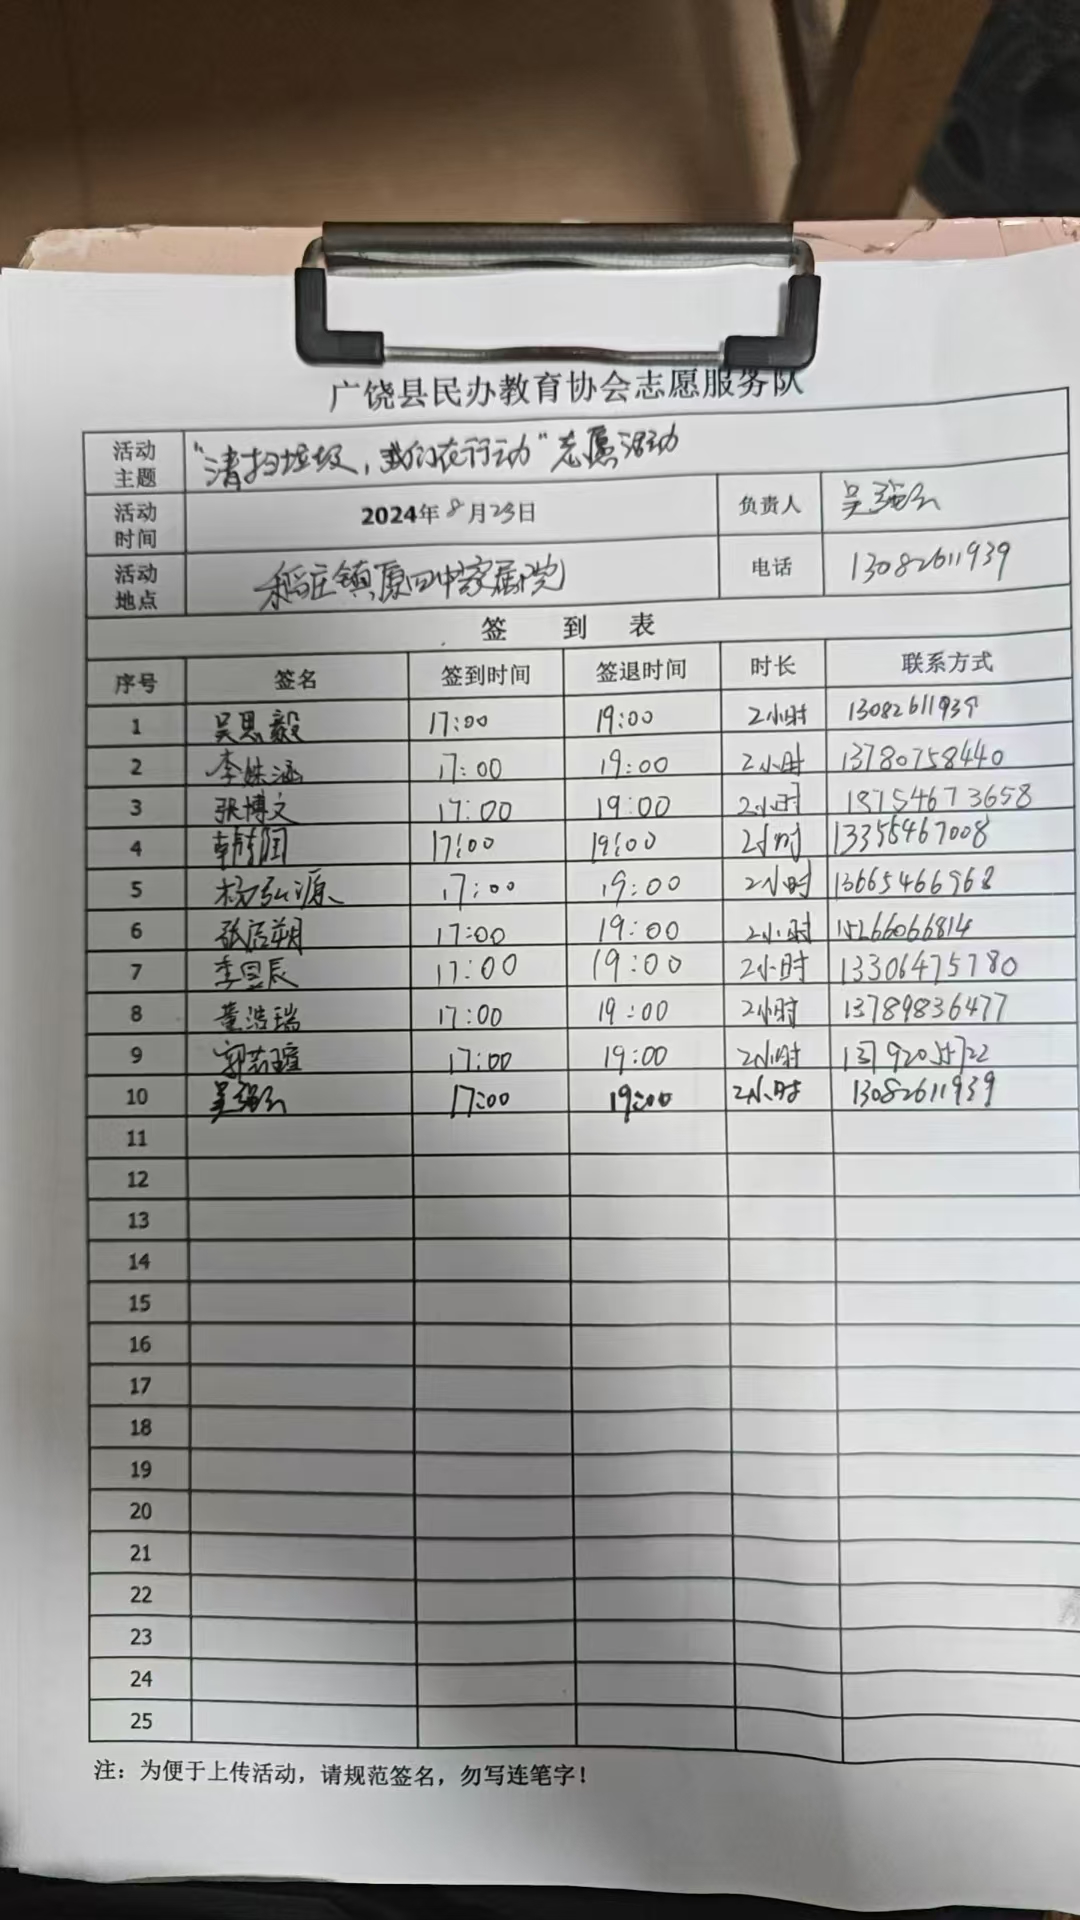 广饶县民办教育协会志愿服务队
活动主题 “清扫垃圾，我们在行动”志愿活动
活动时间 2024年8月23日 负责人 吴强弘
活动地点 稻庄镇原四中家属院 电话 13082611939
签 到 表
序号 签名 签到时间 签退时间 时长 联系方式
1 吴思毅 17:00 19:00 2小时 13082611939
2 李姝涵 17:00 19:00 2小时 13780758440
3 张博文 17:00 19:00 2小时 18754673658
4 17:00 19:00 2小时 13355467008
5 杨弘源 17:00 19:00 2小时 13665466968
6 17:00 19:00 2小时 15266066814
7 李昱辰 17:00 19:00 2小时 13306475780
8 董浩瑞 17:00 19:00 2小时 13789836477
9 郭若瑄 17:00 19:00 2小时
10 17:00 19:00 2小时 13082611939
11
12
13
14
15
16
17
18
19
20
21
22
23
24
25
注：为便于上传活动，请规范签名，勿写连笔字！